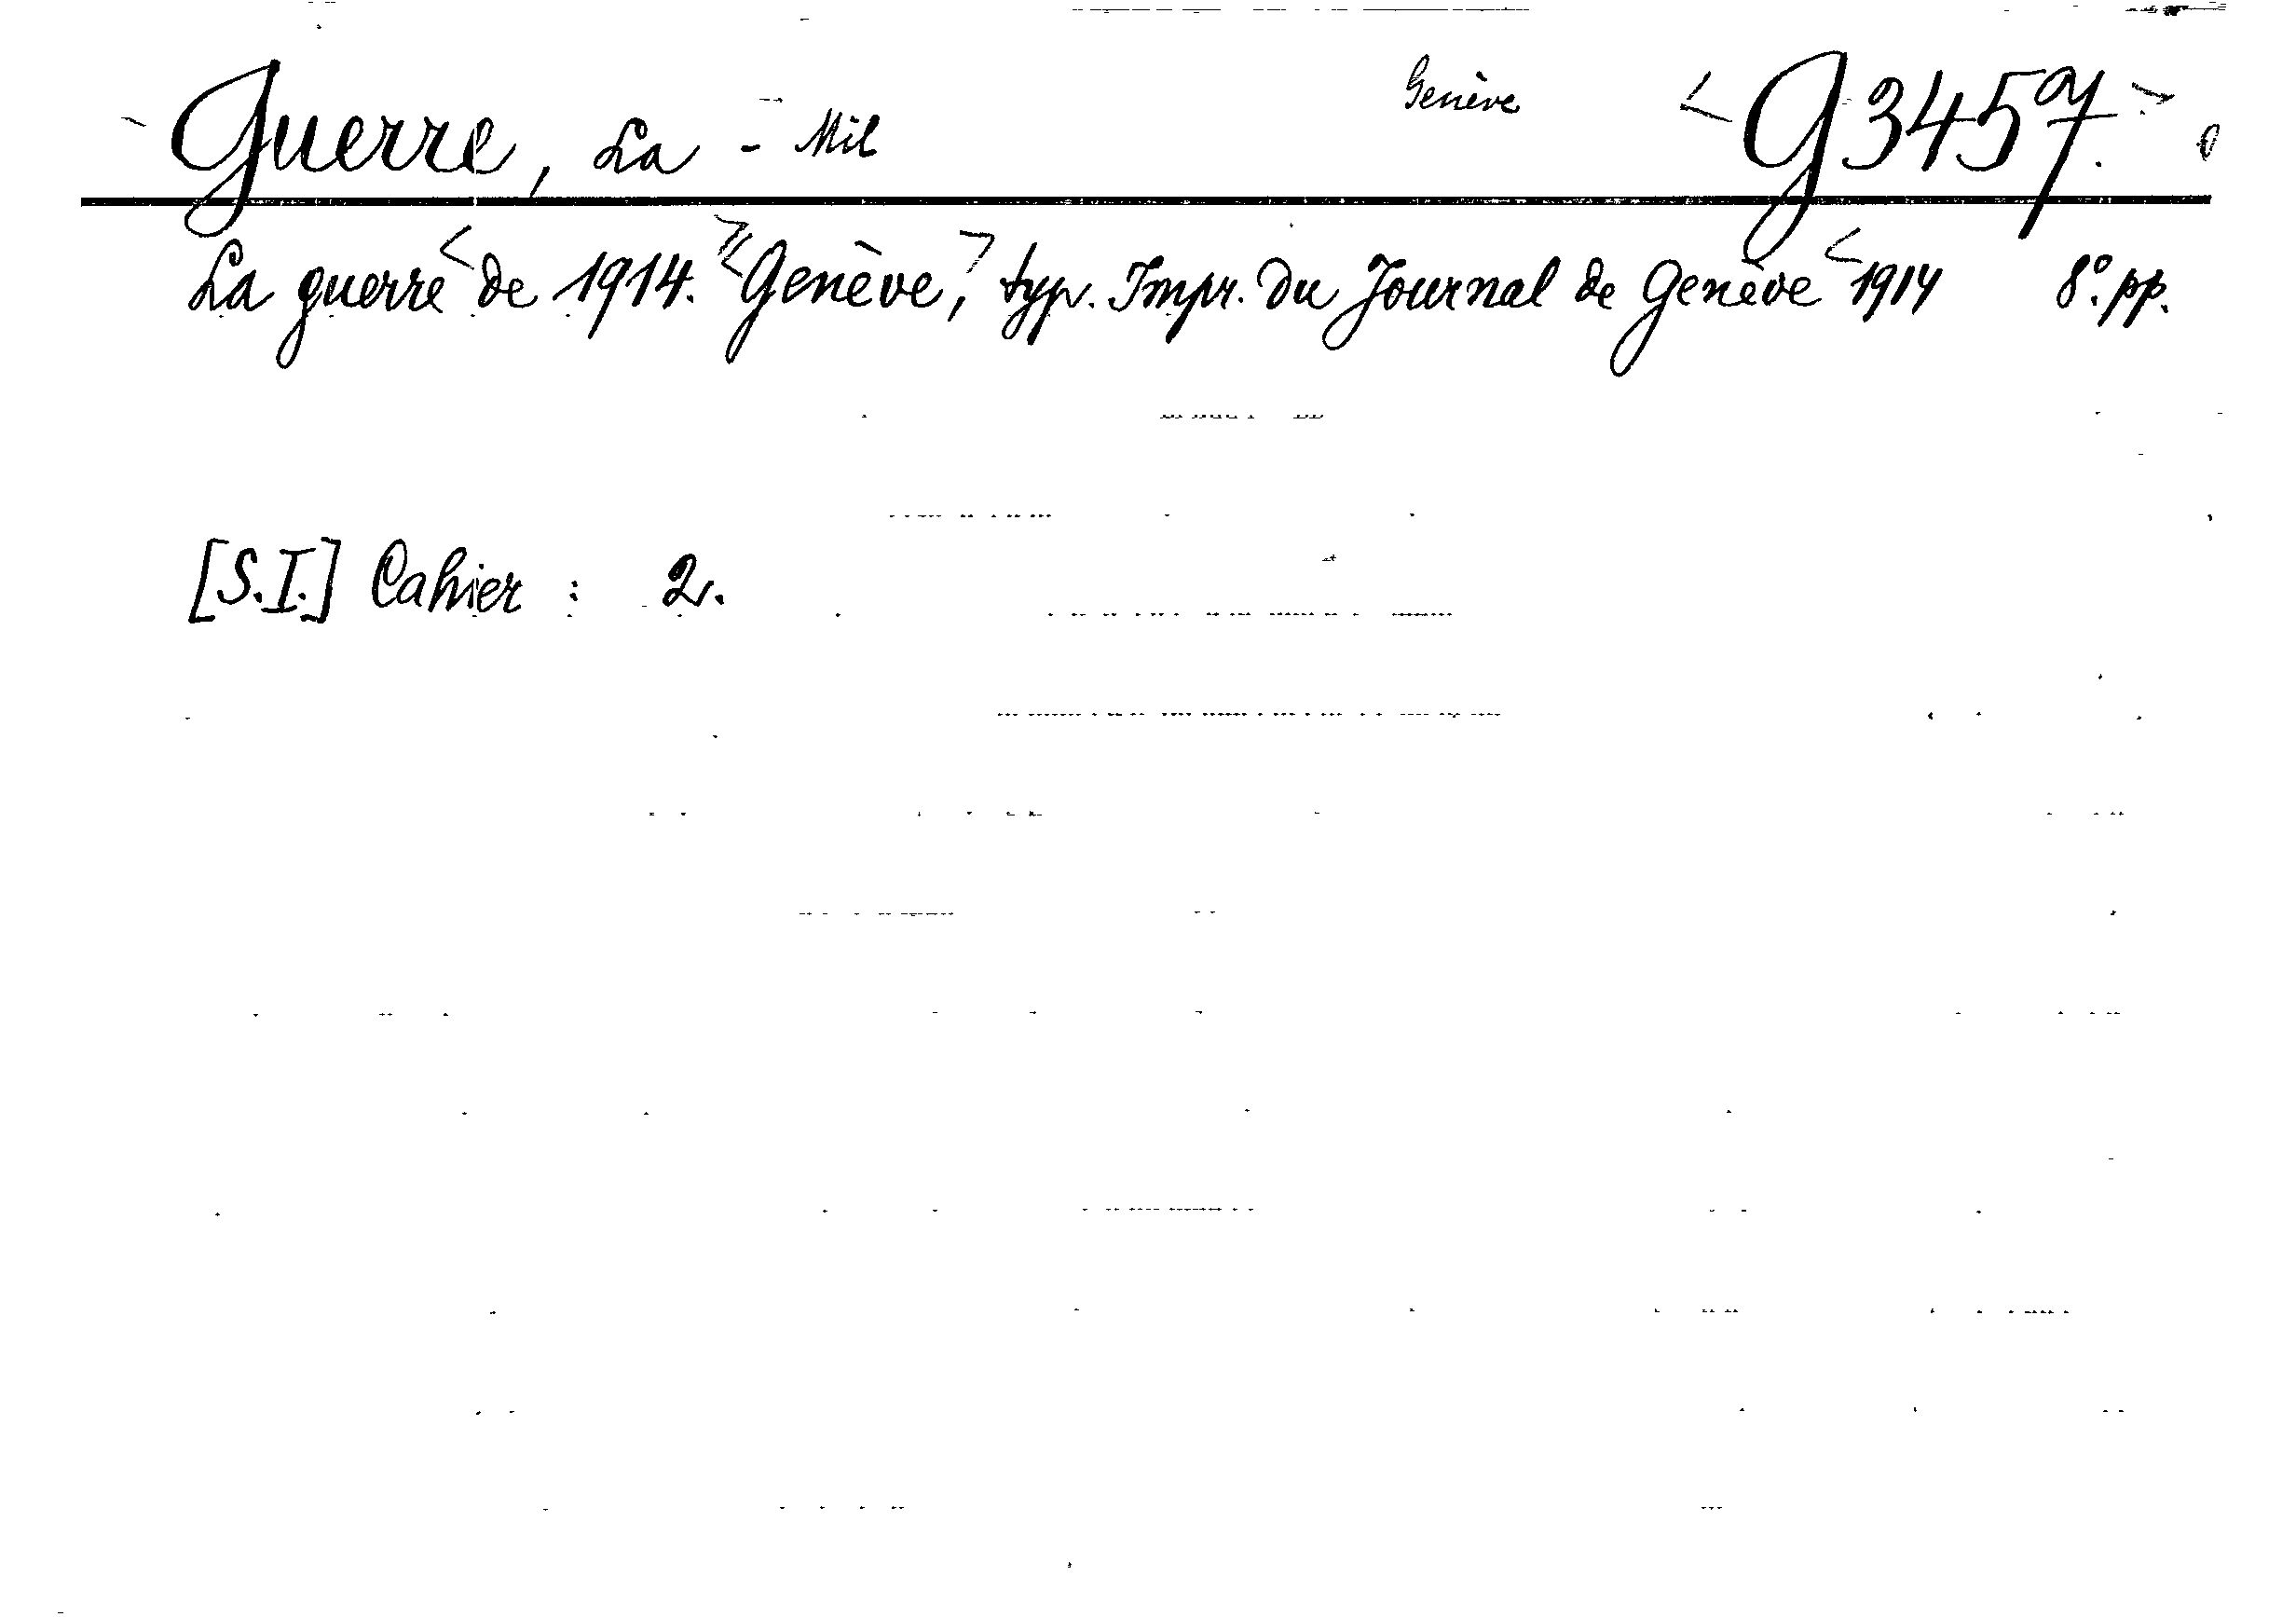 Guerre, La - Mil Genève < G 3457. >
La guerre < de 1914. >< Genève, > typ. Impr. du Journal de Genève < 1914 8° pp.
[S.I.] Cahier : 2.